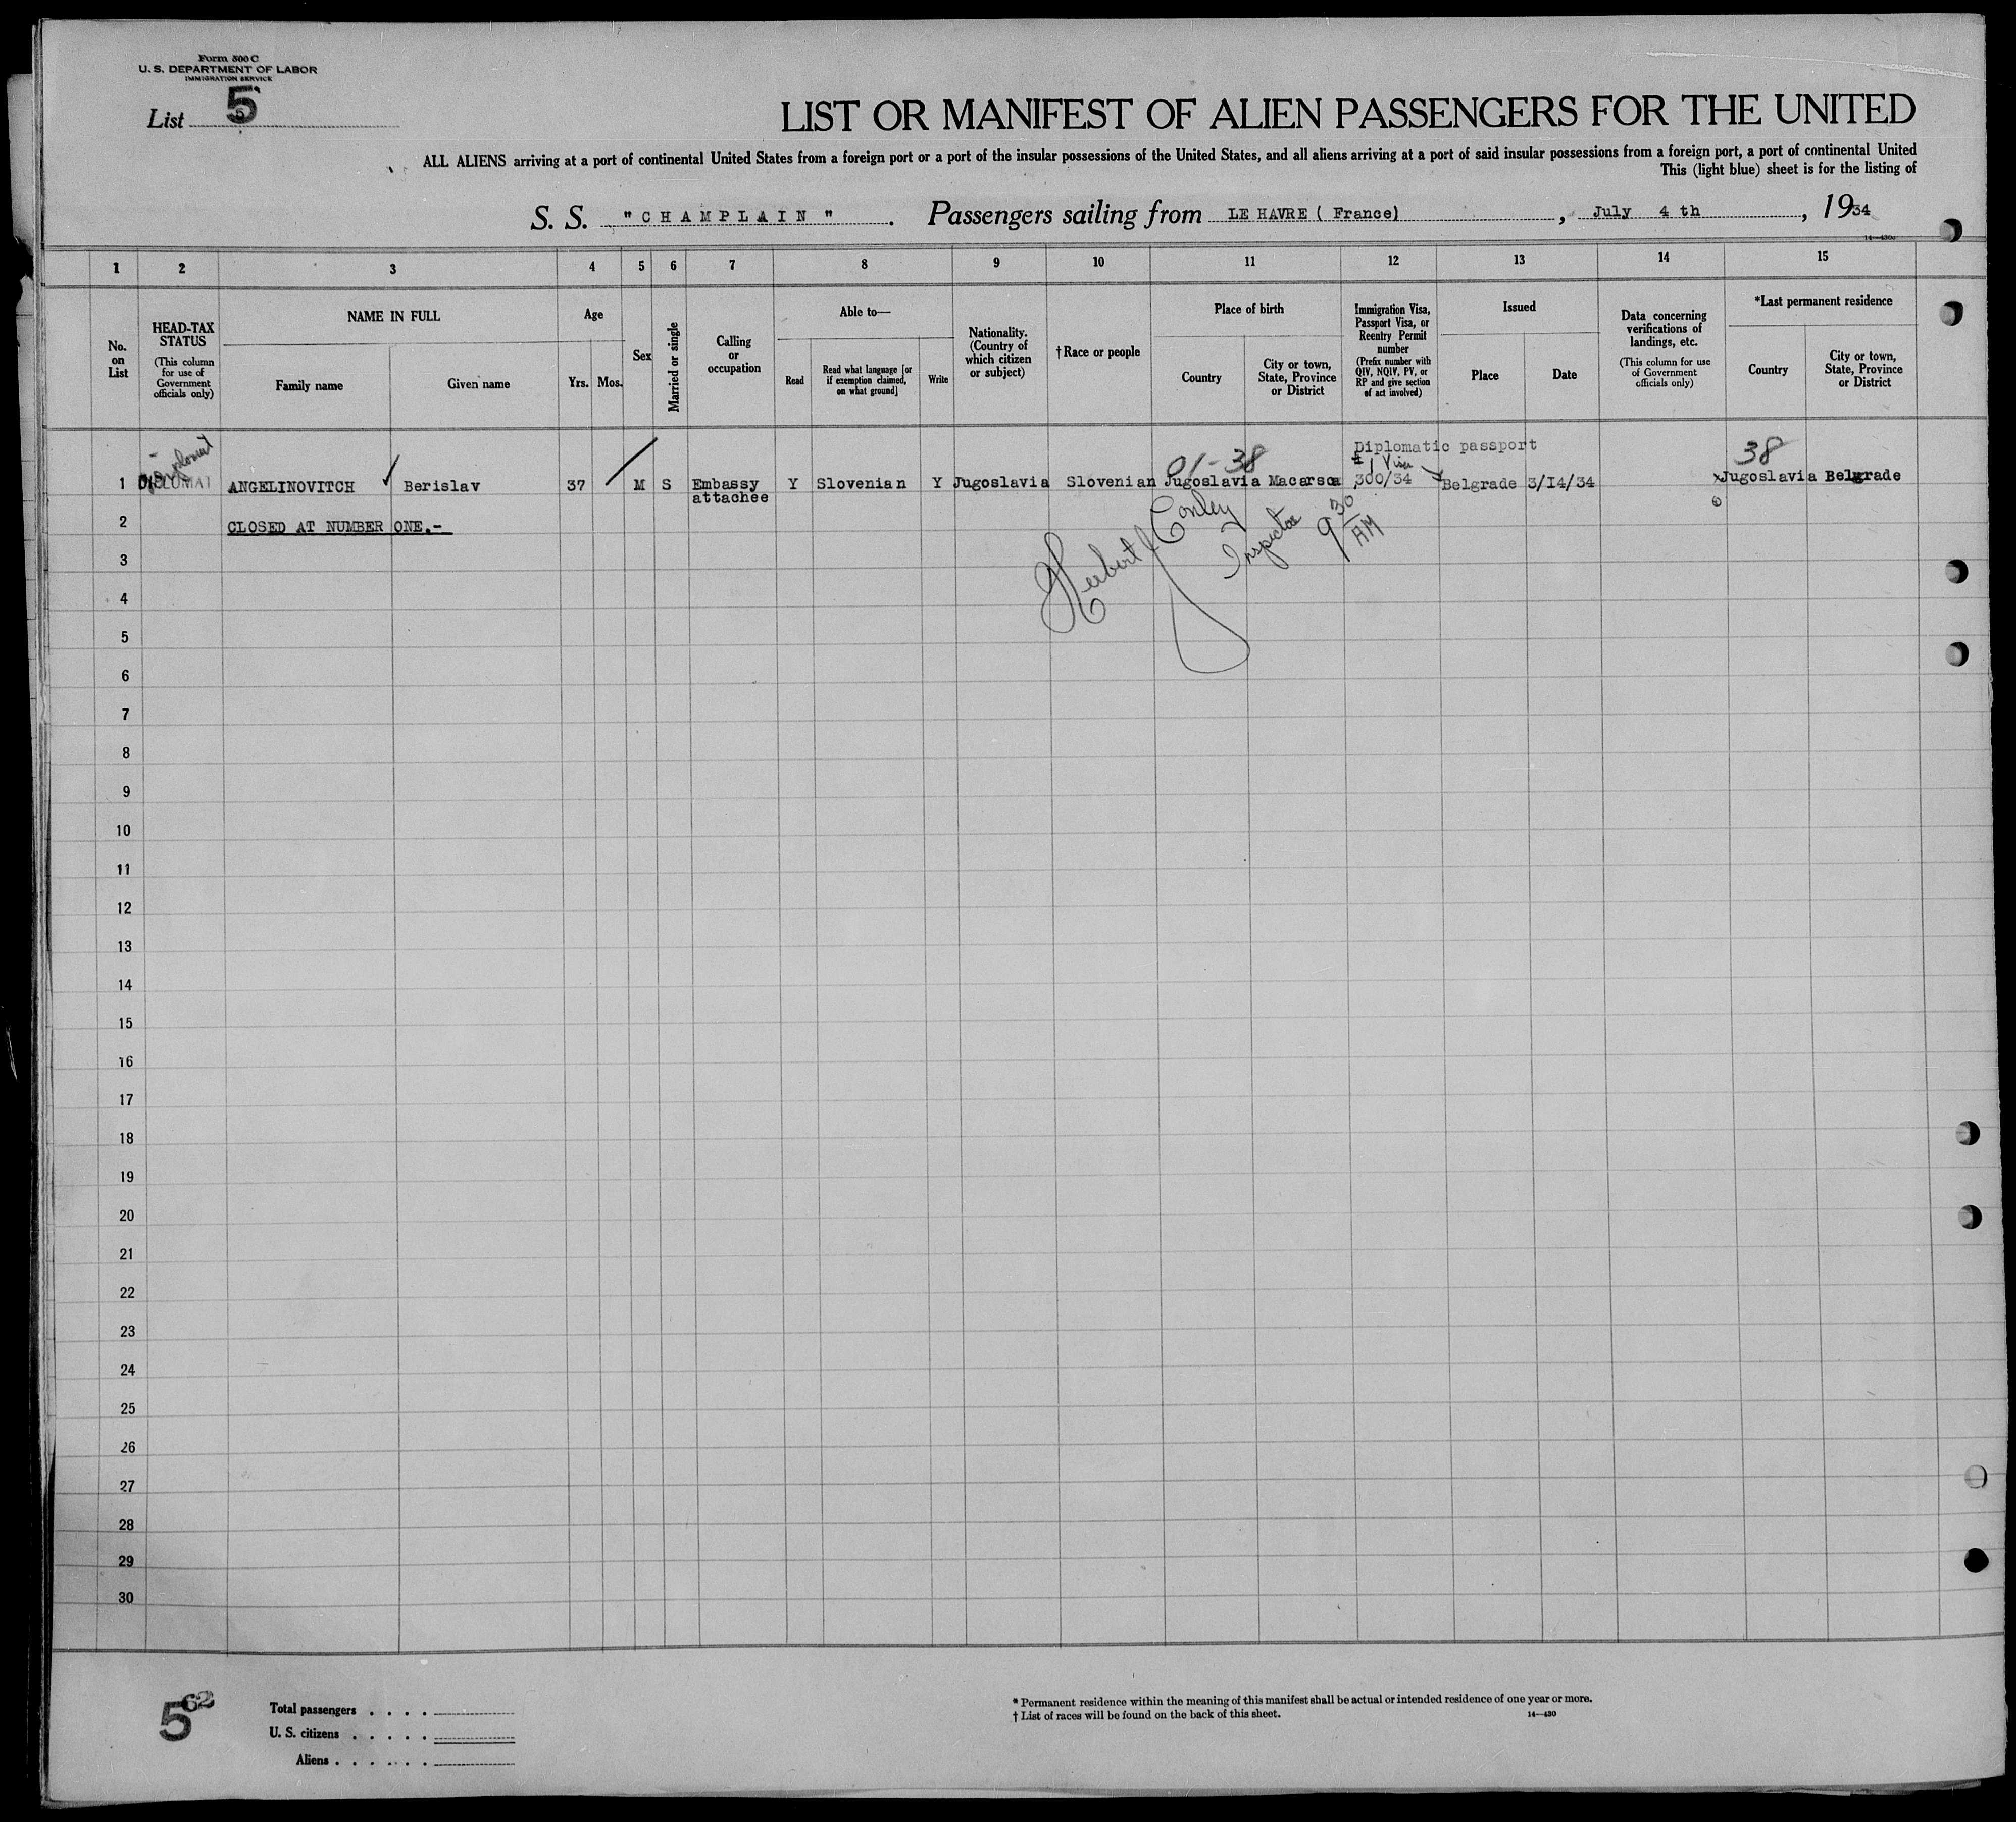 Form 500 C
U. S. DEPARTMENT OF LABOR
IMMIGRATION SERVICE
List 5
LIST OR MANIFEST OF ALIEN PASSENGERS FOR THE UNITED
ALL ALIENS arriving at a port of continental United States from a foreign port or a port of the insular possessions of the United States, and all aliens arriving at a port of said insular possessions from a foreign port, a port of continental United
This (light blue) sheet is for the listing of
S. S. "CHAMPLAIN". Passengers sailing from LE HAVRE ( France) , July 4 th , 1934
14—430a
1 2 3 4 5 6 7 8 9 10 11 12 13 14 15
No. on List
HEAD-TAX STATUS (This column for use of Government officials only)
NAME IN FULL
Family name
Given name
Age
Yrs.
Mos.
Sex
Married or single
Calling or occupation
Able to—
Read
Read what language [or if exemption claimed, on what ground]
Write
Nationality. (Country of which citizen or subject)
†Race or people
Place of birth
Country
City or town, State, Province or District
Immigration Visa, Passport Visa, or Reentry Permit number (Prefix number with QIV, NQIV, PV, or RP and give section of act involved)
Issued
Place
Date
Data concerning verifications of landings, etc. (This column for use of Government officials only)
*Last permanent residence
Country
City or town, State, Province or District
Diplomat 01-38 Diplomatic passport 38
# 1 Visa
1 DIPLOMAT ANGELINOVITCH Berislav 37 M S Embassy attachee Y Slovenian Y Jugoslavia Slovenian Jugoslavia Macarsca 300/34 Belgrade 3/14/34 xJugoslavia Belgrade
2 CLOSED AT NUMBER ONE.-
Herbert J Conley
Inspector
9 30 AM
3
4
5
6
7
8
9
10
11
12
13
14
15
16
17
18
19
20
21
22
23
24
25
26
27
28
29
30
5 62
Total passengers . . . .
U. S. citizens . . . . .
Aliens . . . . . .
* Permanent residence within the meaning of this manifest shall be actual or intended residence of one year or more.
† List of races will be found on the back of this sheet.
14—430